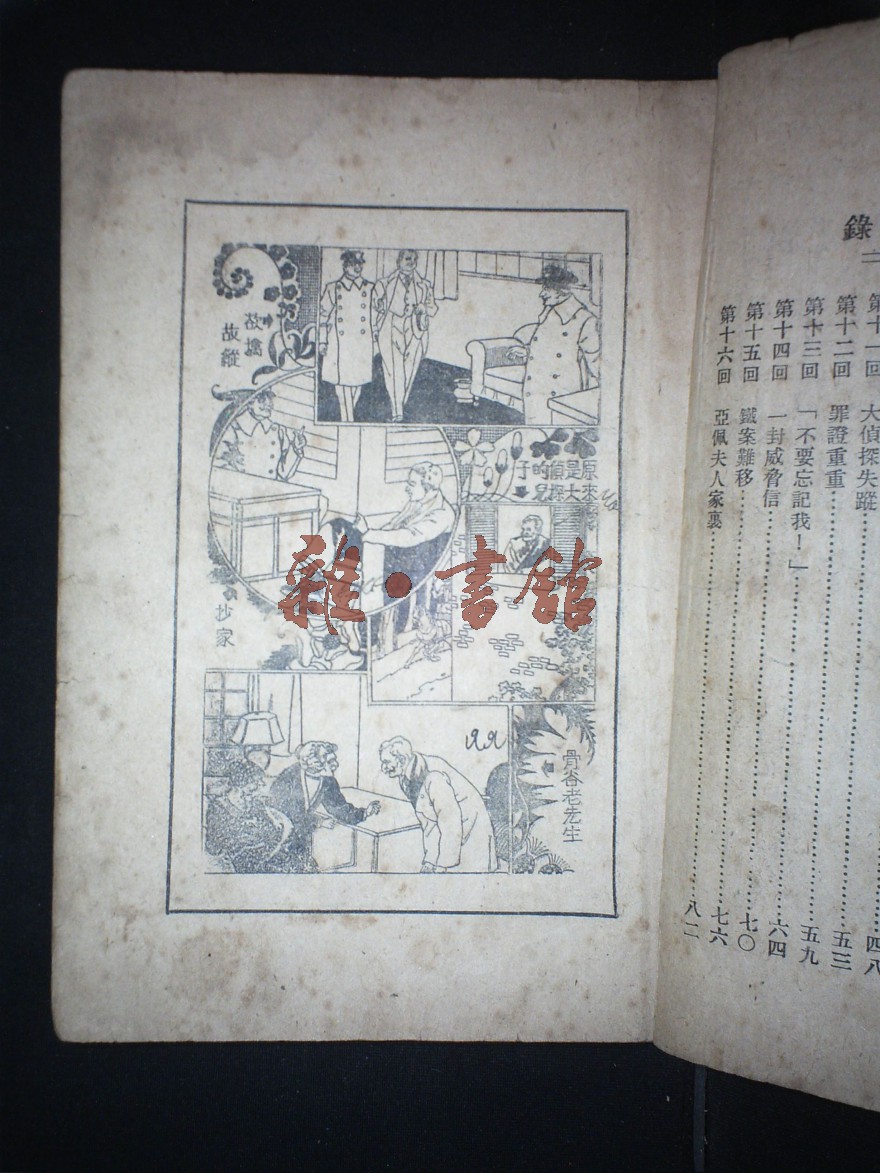 錄
二
第十一回 大偵探失蹤……五三
第十二回 罪證重重……五九
第十三回 「不要忘記我！」……六四
第十四回 一封威脅信……七〇
第十五回 鐵案難移……七六
第十六回 亞佩夫人家裏……八二
四八
欲擒
故縱
原來
是大
偵探
的兒
子
抄家
骨谷老先生
雜·書館